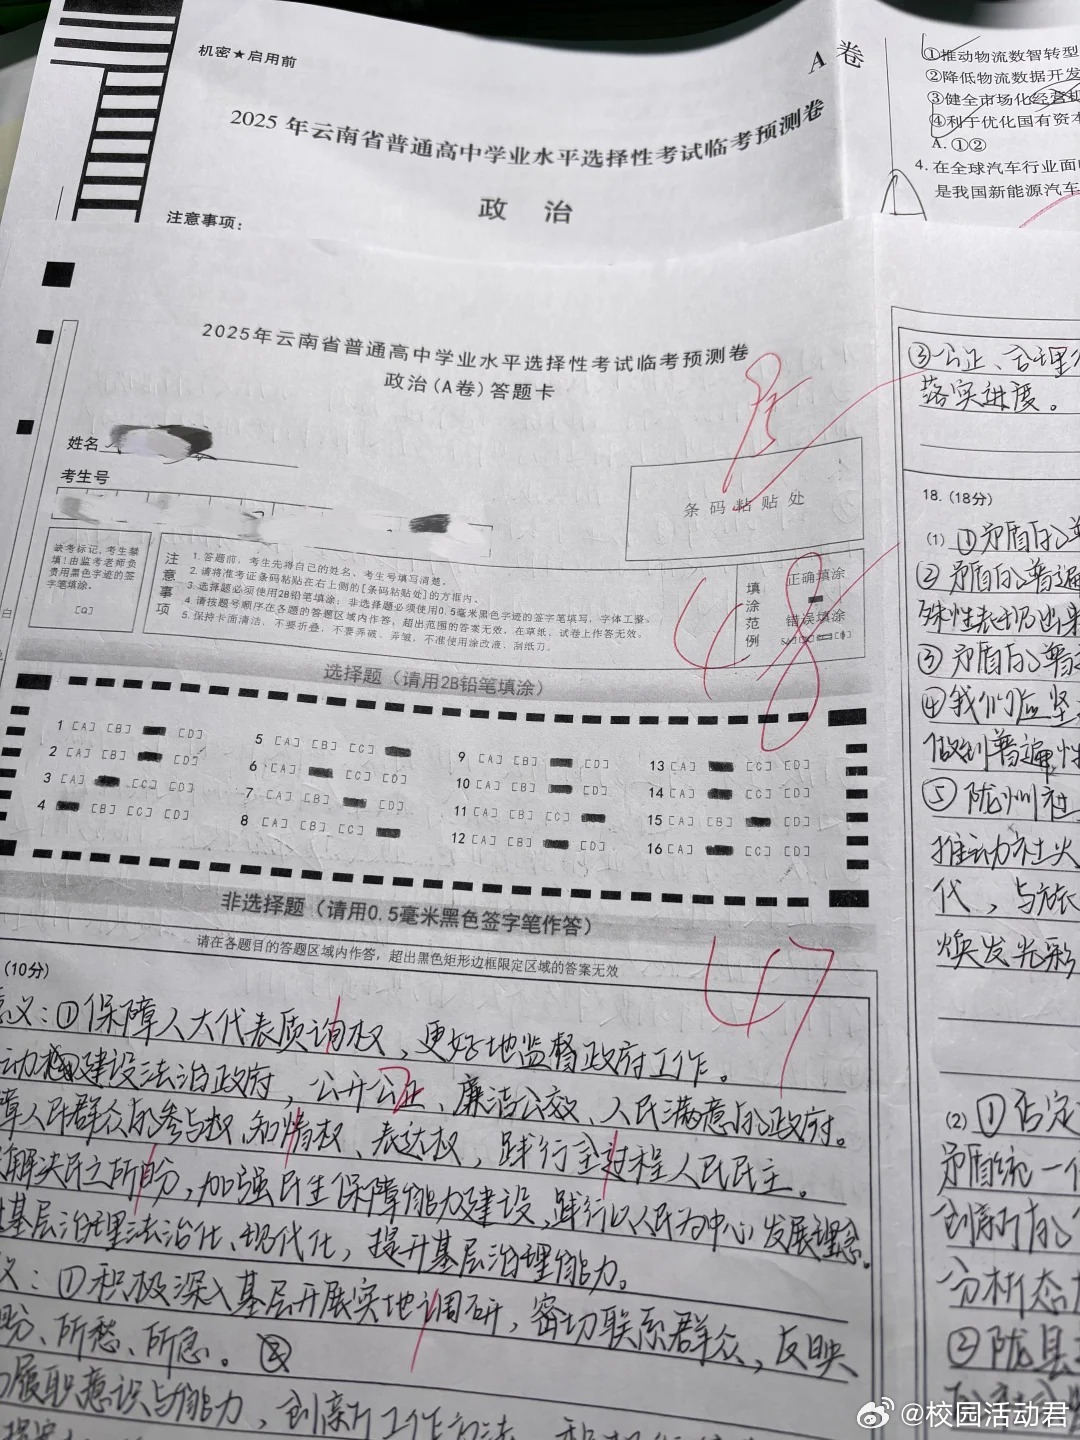 机密★启用前
A 卷
2025 年云南省普通高中学业水平选择性考试临考预测卷
政 治
注意事项：
①推动物流数智转型
②降低物流数据开发
③健全市场化经营
④利于优化国有资本
A. ①②
4. 在全球汽车行业面
是我国新能源汽车
2025年云南省普通高中学业水平选择性考试临考预测卷
政治(A卷)答题卡
姓名
考生号
条码粘贴处
48
缺考标记，考生禁
填！由监考老师负
责用黑色字迹的签
字笔填涂。
注意事项
1. 答题前，考生先将自己的姓名、考生号填写清楚。
2. 请将准考证条码粘贴在右上侧的[条码粘贴处]的方框内。
3. 选择题必须使用2B铅笔填涂；非选择题必须使用0.5毫米黑色字迹的签字笔填写，字体工整。
4. 请按题号顺序在各题的答题区域内作答，超出范围的答案无效，在草纸、试卷上作答无效。
5. 保持卡面清洁，不要折叠、不要弄破、弄皱，不准使用涂改液、刮纸刀。
填涂范例
正确填涂
错误填涂
选择题（请用2B铅笔填涂）
1 [A] [B] [D]
2 [A] [B] [D]
3 [A] [C] [D]
4 [B] [C] [D]
5 [A] [B] [C]
6 [A] [C] [D]
7 [A] [B] [D]
8 [A] [B] [C]
9 [A] [B] [D]
10 [A] [B] [D]
11 [A] [B] [C]
12 [A] [B] [D]
13 [A] [C] [D]
14 [A] [C] [D]
15 [A] [B] [D]
16 [A] [C] [D]
非选择题（请用0.5毫米黑色签字笔作答）
请在各题目的答题区域内作答，超出黑色矩形边框限定区域的答案无效
47
(10分)
意义：①保障人大代表质询权，更好地监督政府工作。
建设法治政府，公开公正、廉洁公效、人民满意的政府。
障人民群众的参与权、知情权、表达权，践行全过程人民民主。
解决民之所盼，加强民生保障能力建设，践行以人民为中心发展理念。
基层治理法治化、现代化，提升基层治理能力。
义：①积极深入基层开展实地调研，密切联系群众，反映
盼、所愁、所急。②
履职意识与能力，创新工作方法
③公正、合理
落实进度。
18. (18分)
(1) ①矛盾的
②矛盾的普遍
殊性表现出来
③矛盾的普
④我们应坚
做到普遍性
⑤陇州社
推动社火
代，与旅
焕发光彩
(2) ①否定
矛盾统一
创新的
分析态
②陇县
@校园活动君